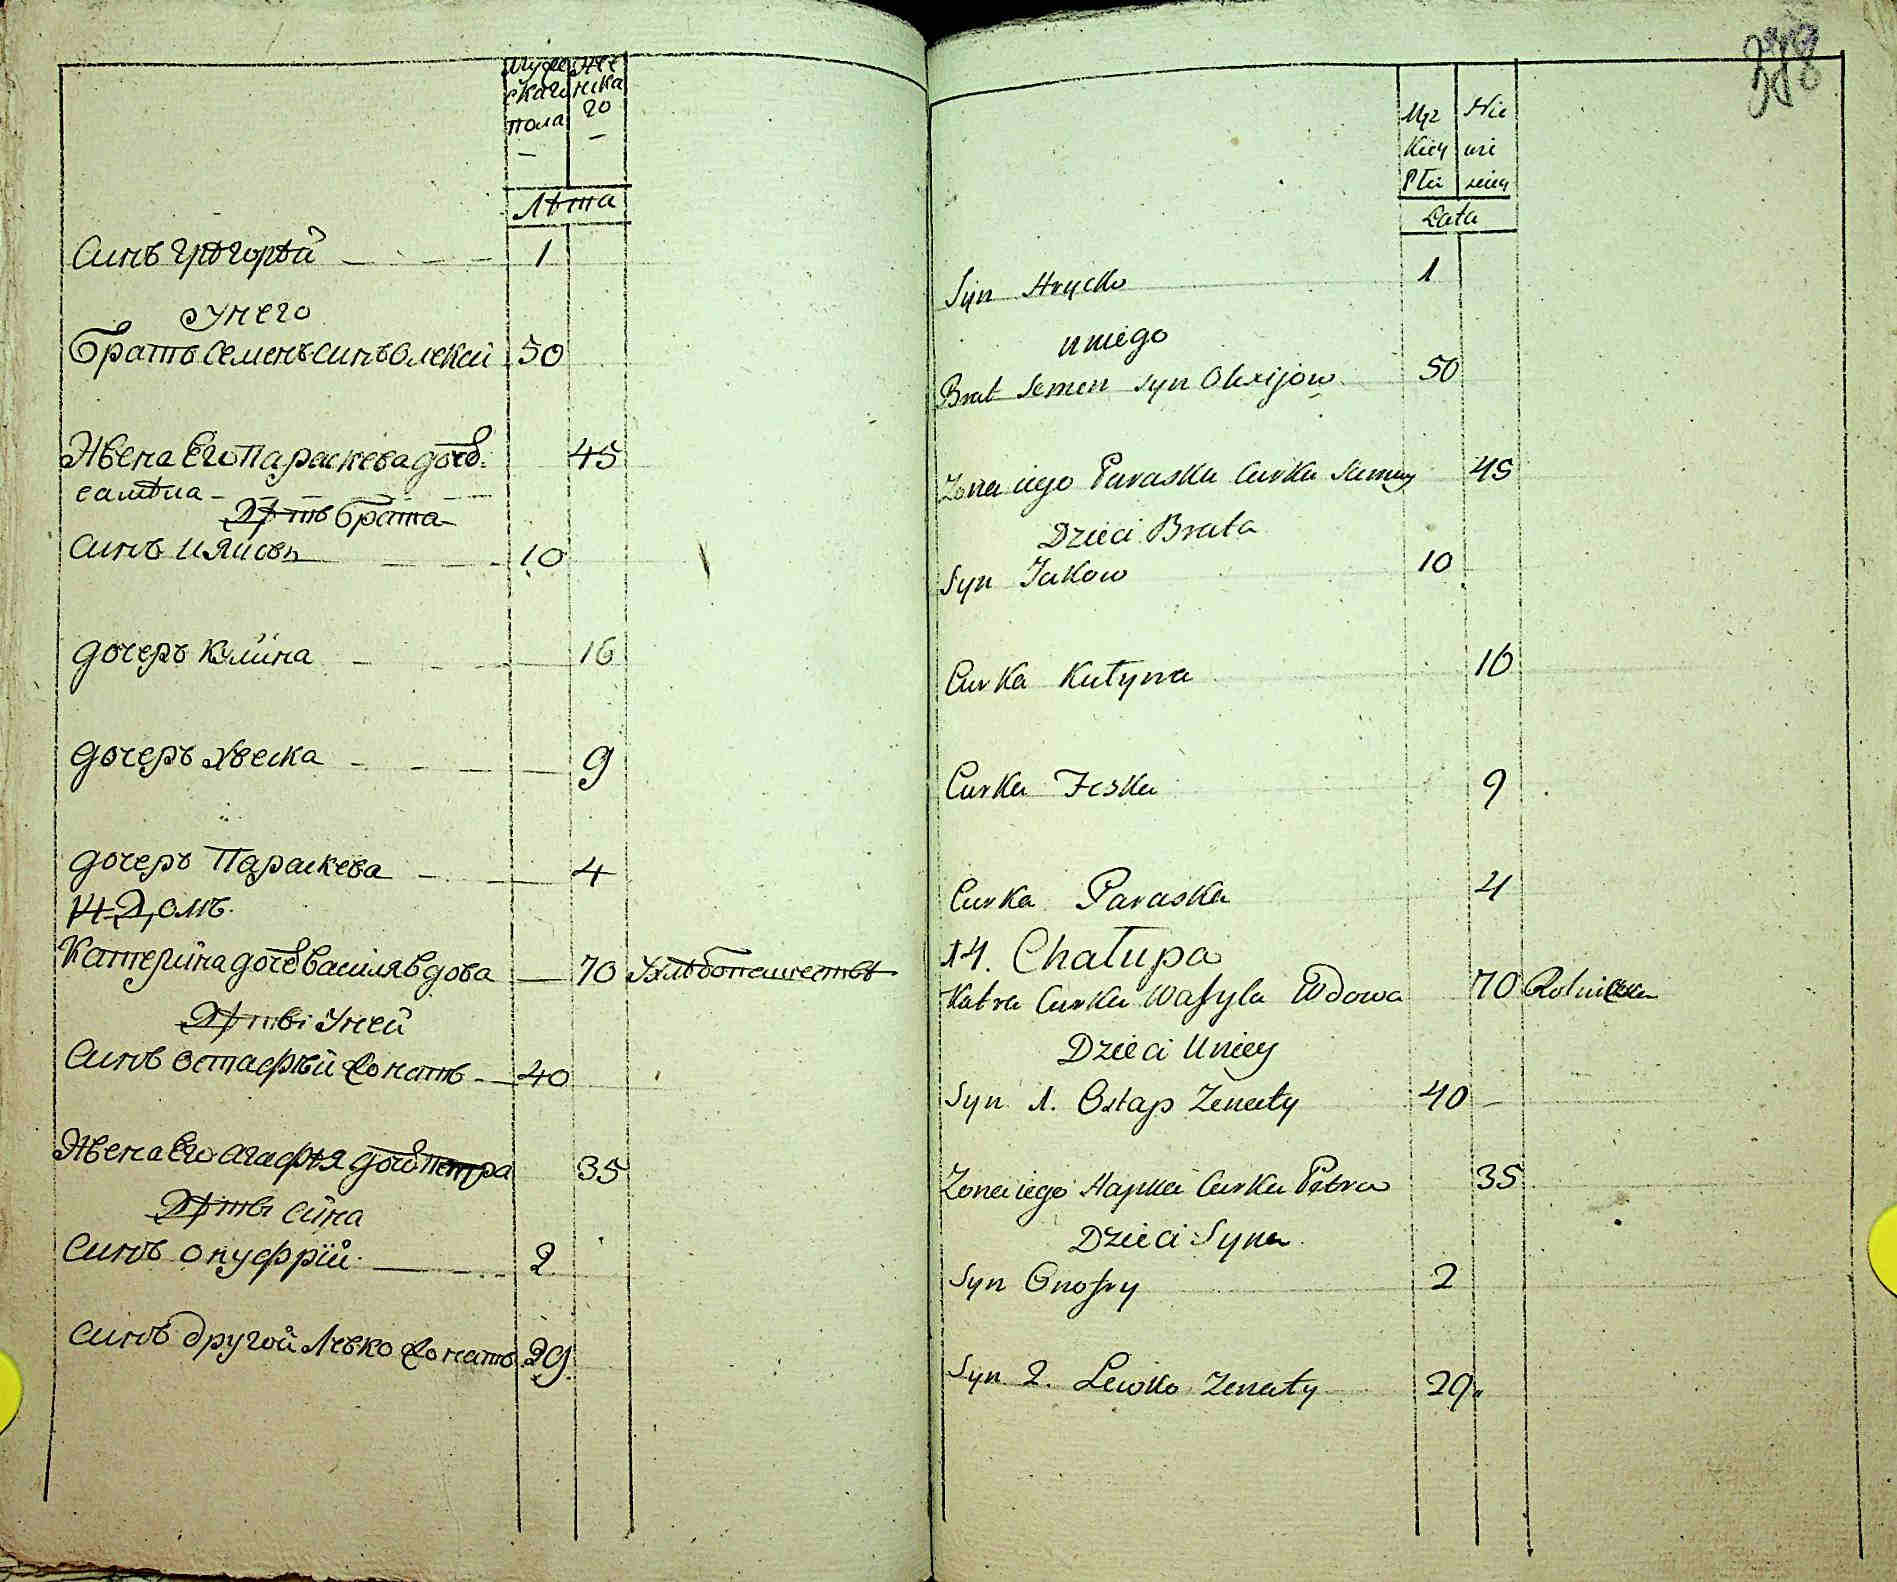 Мужескаго пола
Женскаго
Лѣта
Синъ Григорѣй 1
У него
братъ Семенъ синъ Олекси 50
Жена Его Параскева дочь 45
Дѣти брата
Синъ Яковъ 10
дочерь Кулина 16
дочерь Хвеска 9
дочерь Параскева 4
14 Домъ
Катерина дочь Василя вдова 70 У хлѣбопашествѣ
Дѣти у ней
Синъ Остафѣй женатъ 40
Жена Его Агафѣя дочь Петра 35
Дѣти сина
Синъ Онуфрій 2
Синъ другой Левко женатъ 29
Męzkiey Płci
Niewiesciey
Lata
Syn Hrycko 1
u niego
Brat Semen syn Olexijow 50
Zona iego Paraska Curka 45
Dzieci Brata
Syn Jakow 10
Curka Kulyna 16
Curka Feska 9
Curka Paraska 4
14. Chałupa
Katra Curka Wasyla Wdowa 70 Rolniczka
Dzieci u niey
Syn 1. Ostap Zenaty 40
Zona iego Hapka Curka Petra 35
Dzieci Syna
Syn Onofry 2
Syn 2. Lewko Zenaty 29